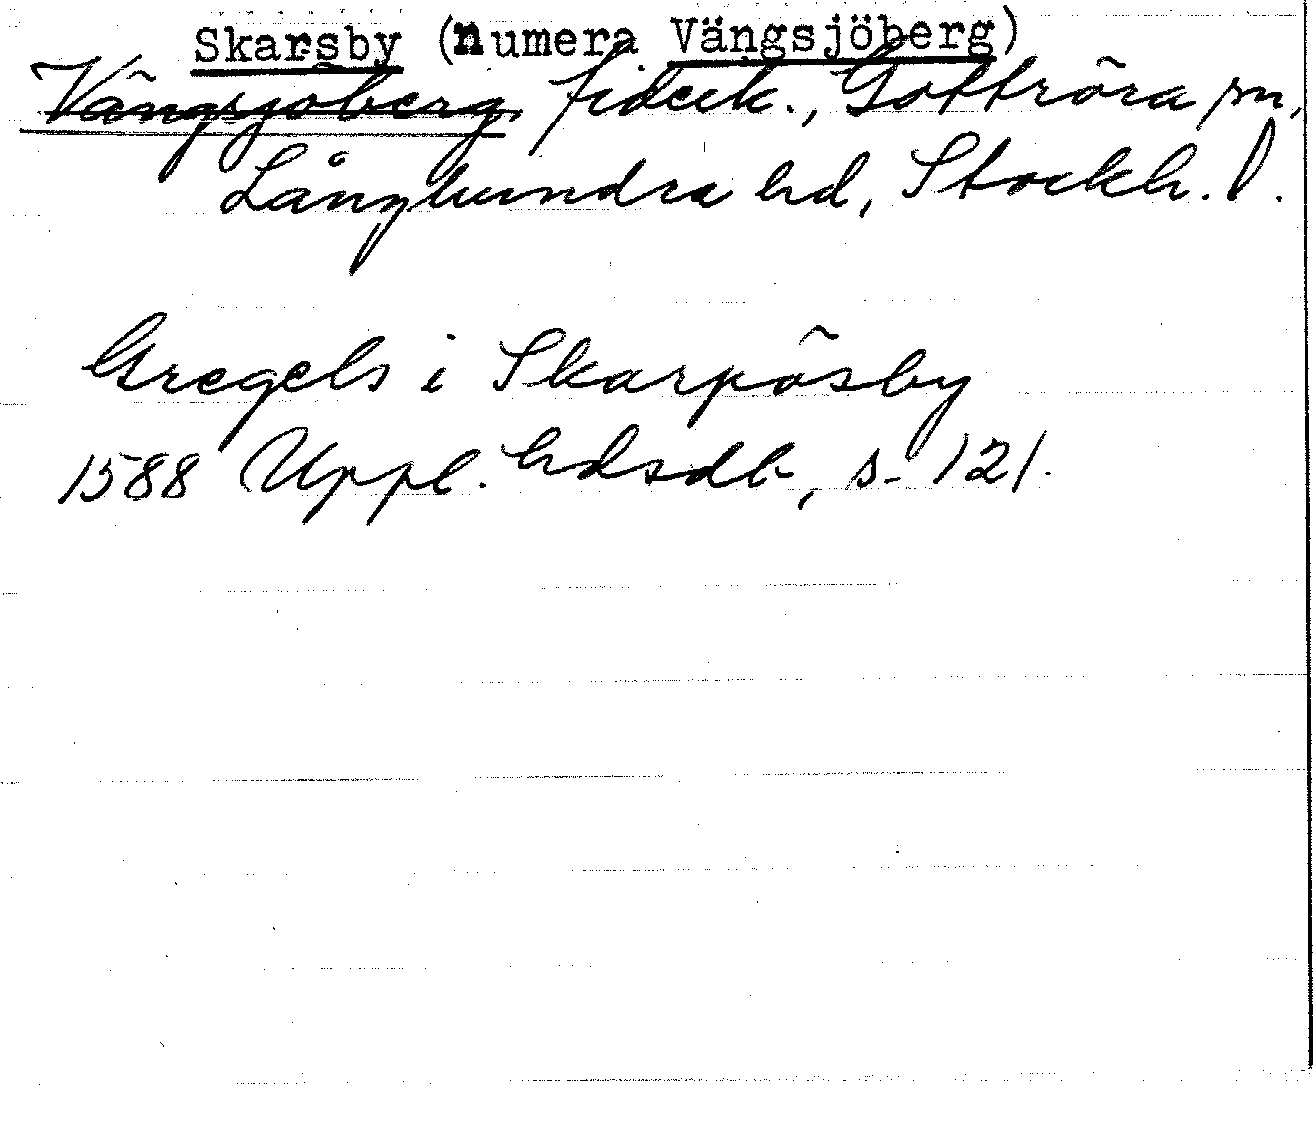 Skarsby (numera Vängsjöberg)
Vängsjöberg, fideik., Gottröra sn,
Långhundra hd, Stockh. l.
Gregels i Skarpösby
1588 Uppl. hdsdb, s. 121.